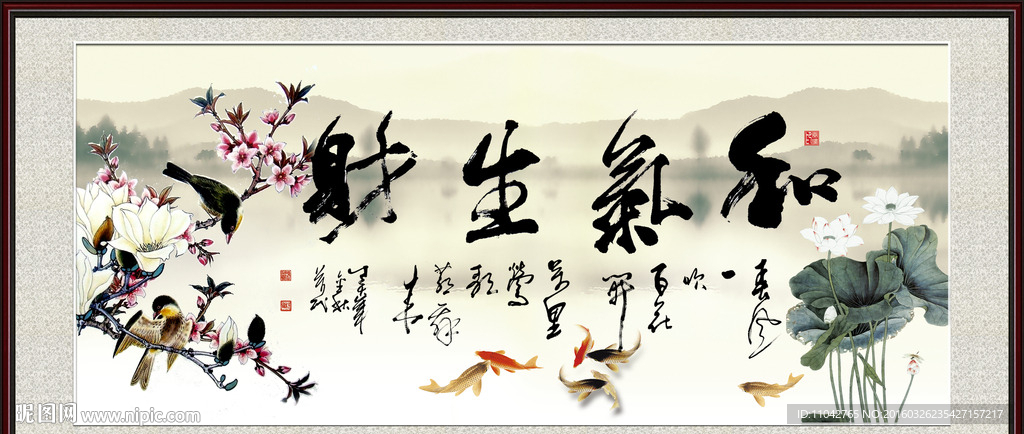 和氣生財
春风一吹百花開万里鶯歌燕舞来
昵图网 www.nipic.com
ID:11042765 NO:20160326235427157217